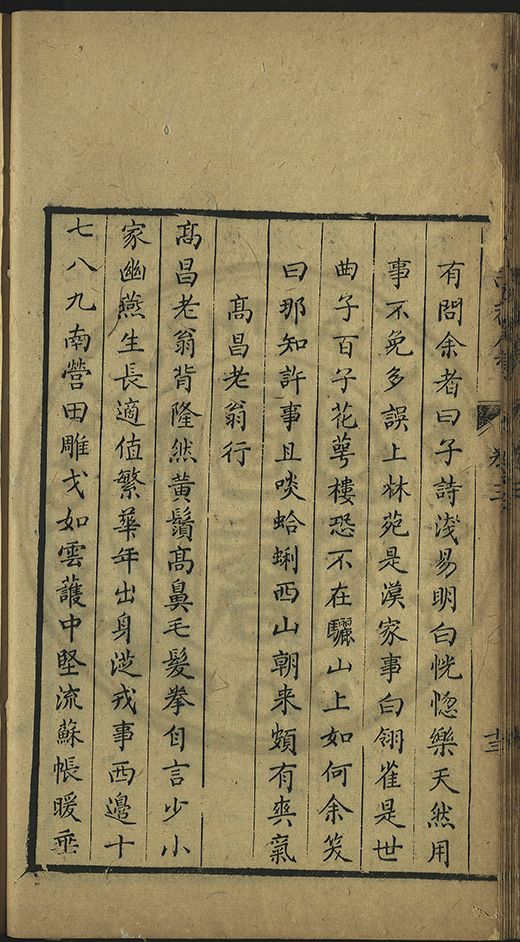 有問余者曰子詩淺易明白恍惚樂天然用
事不免多誤上林苑是漢家事白翎雀是世
曲子百子花萼樓恐不在驪山上如何余笑
曰那知許事且啖蛤蜊西山朝来頗有爽氣
高昌老翁行
高昌老翁背隆然黃鬚高鼻毛髮拳自言少小
家幽燕生長適值繁華年出身涉戎事西邊十
七八九南營田雕戈如雲護中堅流蘇帳暖垂